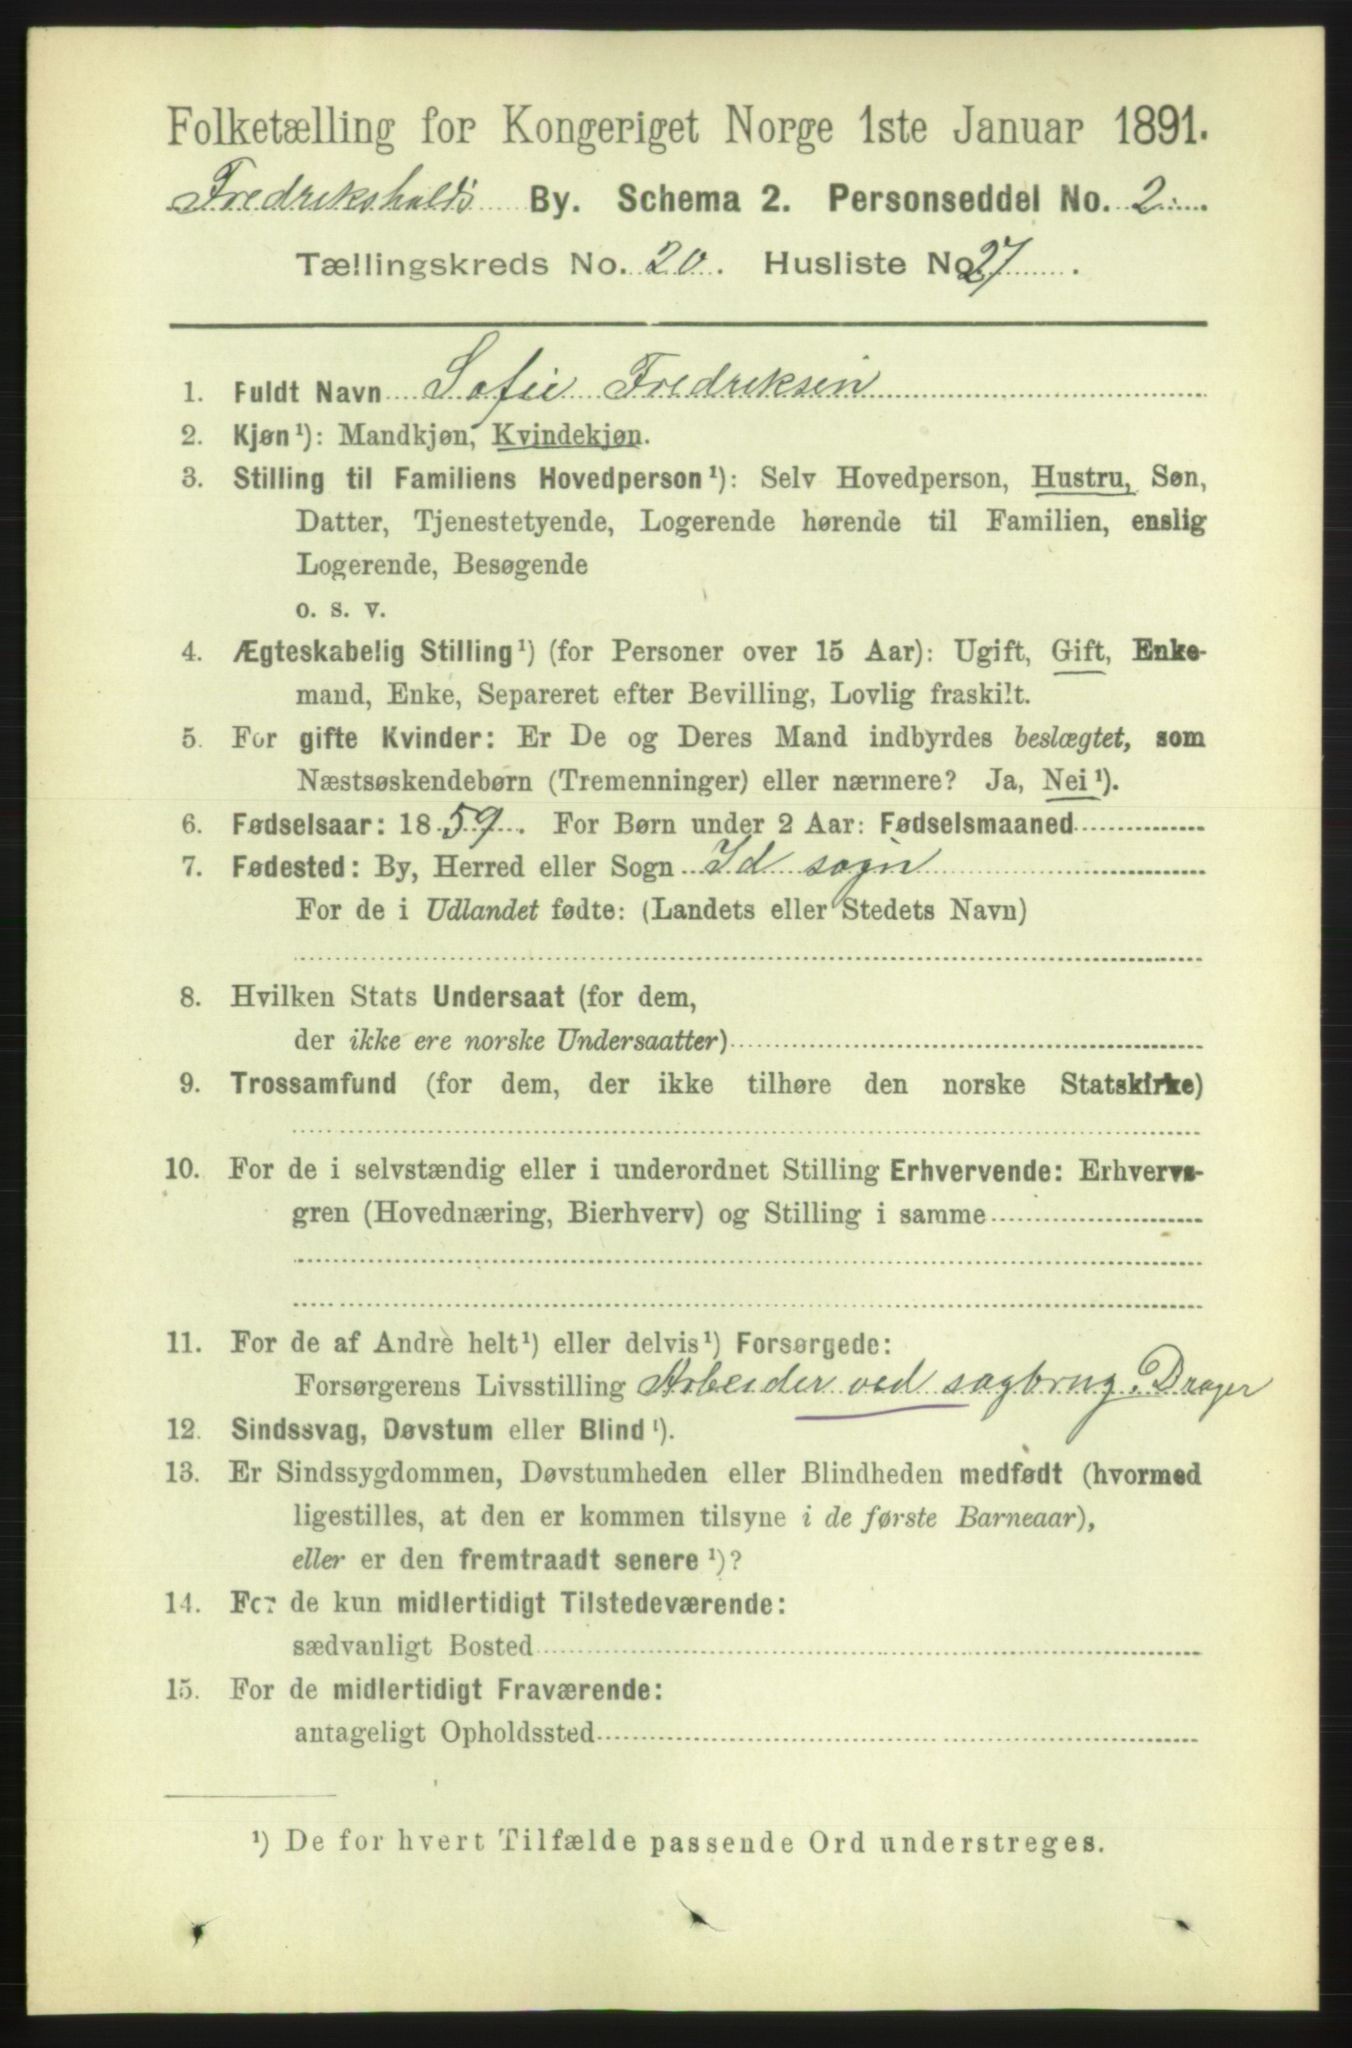 Folketælling for Kongeriget Norge 1ste Januar 1891.
Fredrikshalds By. Schema 2. Personseddel No. 2
Tællingskreds No. 20. Husliste No. 27.
1. Fuldt Navn Sofie Fredriksen
2. Kjøn¹): Mandkjøn, Kvindekjøn.
3. Stilling til Familiens Hovedperson¹): Selv Hovedperson, Hustru, Søn,
Datter, Tjenestetyende, Logerende hørende til Familien, enslig
Logerende, Besøgende
o. s. v.
4. Ægteskabelig Stilling¹) (for Personer over 15 Aar): Ugift, Gift, Enke-
mand, Enke, Separeret efter Bevilling, Lovlig fraskilt.
5. For gifte Kvinder: Er De og Deres Mand indbyrdes beslægtet, som
Næstsøskendebørn (Tremenninger) eller nærmere? Ja, Nei¹).
6. Fødselsaar: 1859. For Børn under 2 Aar: Fødselsmaaned
7. Fødested: By, Herred eller Sogn Id sogn
For de i Udlandet fødte: (Landets eller Stedets Navn)
8. Hvilken Stats Undersaat (for dem,
der ikke ere norske Undersaatter)
9. Trossamfund (for dem, der ikke tilhøre den norske Statskirke)
10. For de i selvstændig eller i underordnet Stilling Erhvervende: Erhvervs-
gren (Hovednæring, Bierhverv) og Stilling i samme
11. For de af Andre helt¹) eller delvis¹) Forsørgede:
Forsørgerens Livsstilling Arbeider ved sagbrug. Drager
12. Sindssvag, Døvstum eller Blind¹).
13. Er Sindssygdommen, Døvstumheden eller Blindheden medfødt (hvormed
ligestilles, at den er kommen tilsyne i de første Barneaar),
eller er den fremtraadt senere¹)?
14. For de kun midlertidigt Tilstedeværende:
sædvanligt Bosted
15. For de midlertidigt Fraværende:
antageligt Opholdssted
¹) De for hvert Tilfælde passende Ord understreges.